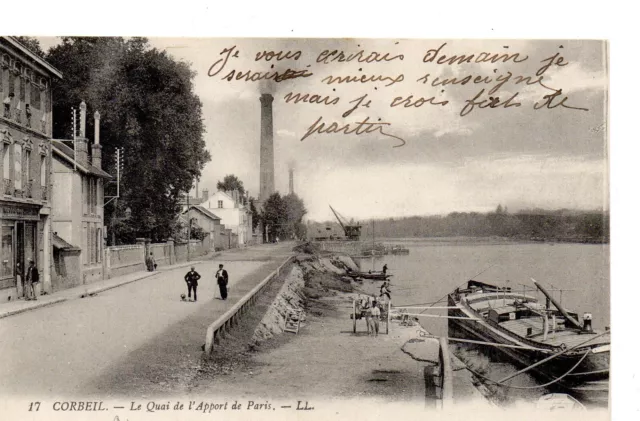 Je vous ecrirais demain je
serais mieux renseigne
mais je crois fort de
partir
17 CORBEIL. - Le Quai de l'Apport de Paris. - LL.